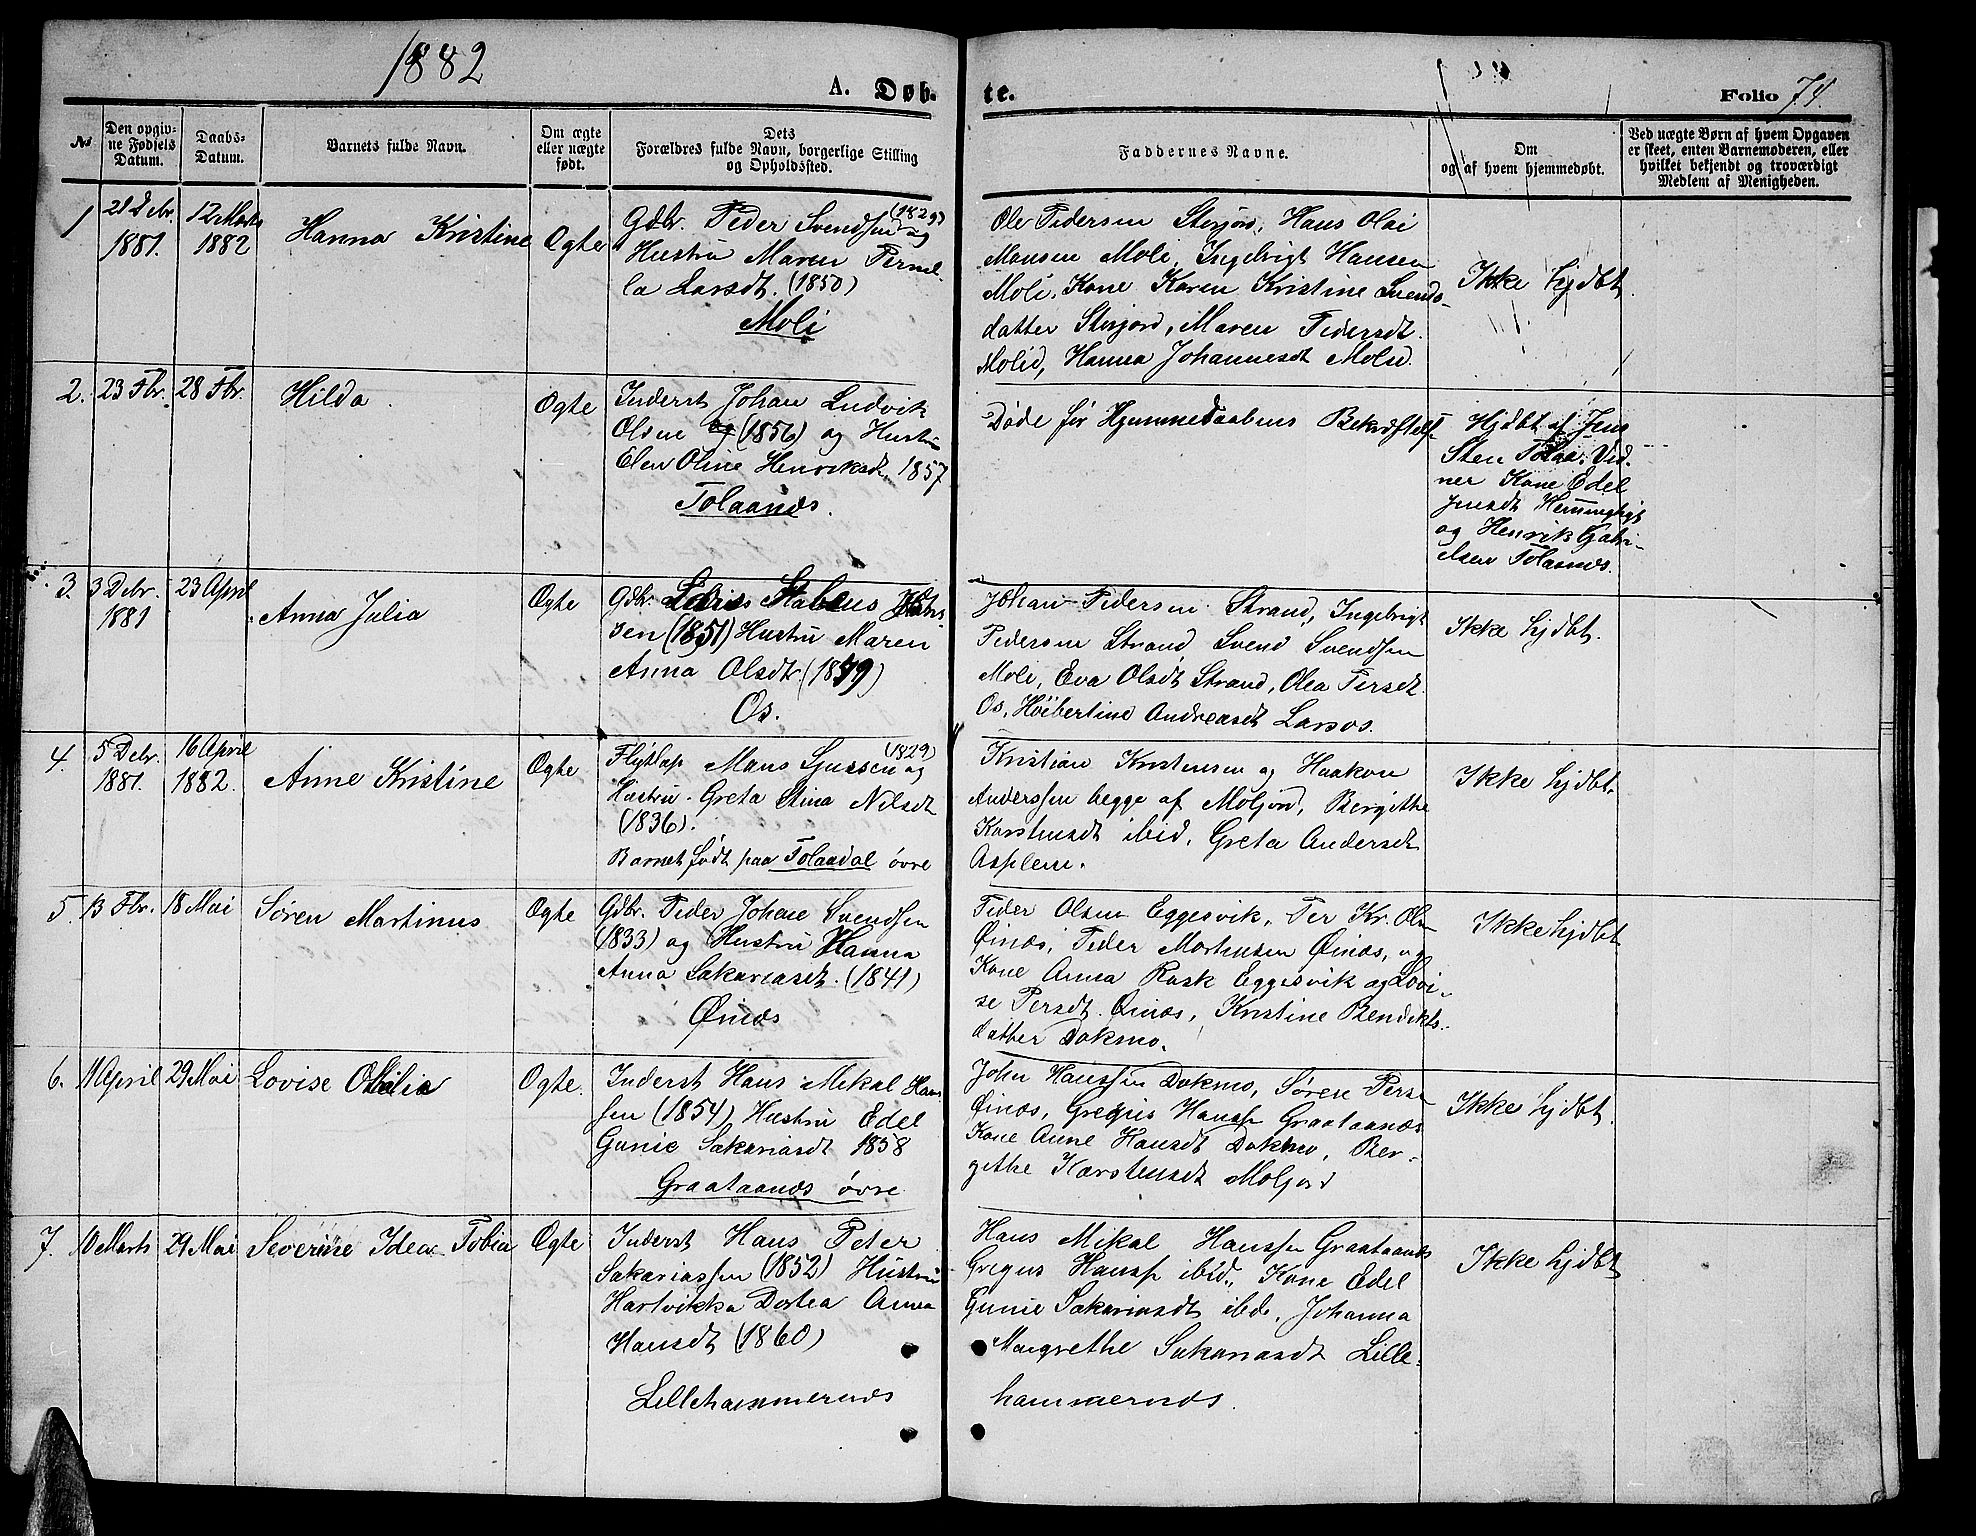 1882
A. Døb-
te.
Folio 74.
№
Den opgiv-
ne Fødsels
Datum.
Daabs-
Datum.
Barnets fulde Navn.
Om ægte
eller uægte
født.
Dets
Forældres fulde Navn, borgerlige Stilling
og Opholdssted.
Faddernes Navne.
Om
og af hvem hjemmedøbt.
Ved uægte Børn af hvem Opgaven
er skeet, enten Barnemoderen, eller
hvilket bekjendt og troværdigt
Medlem af Menigheden.
1
21 Debr.
1881.
12 Marts
1882
Hanna Kristine
Ægte
Gdbr. Peder Svendsen (1829) og
Hustru Maren Pernil-
la Larsdt. (1850)
Moli
Ole Pedersen Storjord, Hans Olai
Monsen Moli, Ingebrigt Hansen
Moli, Kone Karen Kristine Svends-
datter Storjord, Maren Pedersdt.
Molid, Hanna Johannesdt Molid.
Ikke hjdbt.
2.
23 Fbr.
28 Fbr.
Hilda.
Ægte
Inderst Johan Ludvik
Olsen (1856) og Hustru
Elen Oline Henriksdt. 1857
Tolaanæs.
Døde før Hjemmedaabens Bekræftelse
Hjdbt af Jens
Sten Tolaa. Vid-
ner Kone Edel
Jensdt
og Henrik Gabri-
elsen Tolaanæs.
3.
3 Debr.
1881
23 April
Anna Julia
Ægte
Gdbr.
sen (1851) Hustru Maren
Anna Olsdtr (1849)
Os.
Johan Pedersen Strand, Ingebrigt
Pedersen Strand, Svend Svendsen
Moli, Eva Olsdt Strand, Olea Persdt.
Os, Höibertine Andreasdt Larsos.
Ikke hjdbt.
4.
5 Debr.
1881.
16 April
1882.
Anne Kristine
Ægte
Flytlap Mons Sjursen (1829) og
Hustru Greta Stina Nilsdt
(1836).
Barnet født paa Tolaadal øvre
Kristian Kristensen og Haakon
Anderssen begge af Moljord, Bergithe
Karstensdt ibid, Greta Andersdt
Asplem.
Ikke hjdbt.
5.
13 Fbr.
18 Mai
Søren Martinus
Ægte
Gdbr. Peder Johan Svendsen
(1833) og Hustru Hanna
Anna Sakariasdt. (1841)
Øinæs
Peder Olsen Eggesvik, Per Kr. Ols.
Øinæs, Peder Mortensen Øinæs, og
Kone Anna Rask Eggesvik og Lovi-
se Persdt. Øinæs, Kristine Bendikts-
datter Dokmo.
Ikke hjdbt
6.
11 April
29 Mai
Lovise Otilia
Ægte.
Inderst Hans Mikal Hans-
sen (1854) Hustru Edel
Gunie Sakariasdt 1858
Graataanæs øvre
John Hanssen Dokmo, Søren Pers.
Øinæs, Gregus Hanss. Graataanæs
Kone Anne Hansdt Dokmo, Ber-
githe Karstensdt Moljord
Ikke hjdbt.
7.
10 Marts
29 Mai
Severine Idea Tobia
Ægte
Inderst Hans Peter
Sakariassen (1852) Hustru
Hartvikka Dortea Anna
Hansdt (1860)
Lillehammernæs
Hans Mikal Hanssen Graataanæs
Gregus Hanss. ibid., Kone Edel
Gunie Sakariasdt ibde, Johanna
Margrethe Sakariasdt Lille-
hammernæs.
Ikke hjdbt